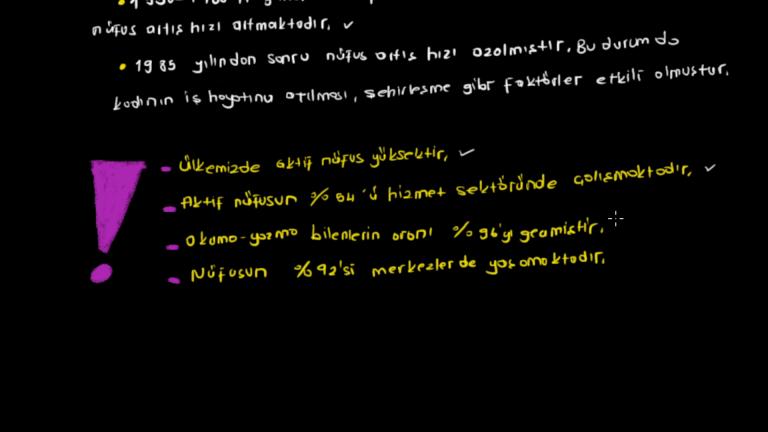 nüfus artış hızı artmaktadır.
1985 yılından sonra nüfus artış hızı azalmıştır. Bu durumda
kadının iş hayatına atılması, şehirleşme gibi faktörler etkili olmuştur.
Ülkemizde aktif nüfus yüksektir.
Aktif nüfusun %54'ü hizmet sektöründe çalışmaktadır.
Okuma-yazma bilenlerin oranı %96'yı geçmiştir.
Nüfusun %92'si merkezlerde yaşamaktadır.